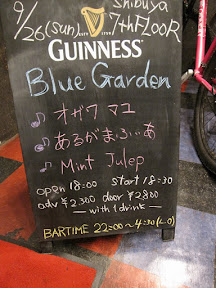 9/26(sun) Shibuya 7thFLOOR
GUINNESS
Blue Garden
♪ オザワ マユ
♪ あるがまふぃあ
♪ Mint Julep
open 18:00 start 18:30
adv ¥2300 door ¥2800
— with 1 drink —
BARTIME 22:00~4:30(L.O)